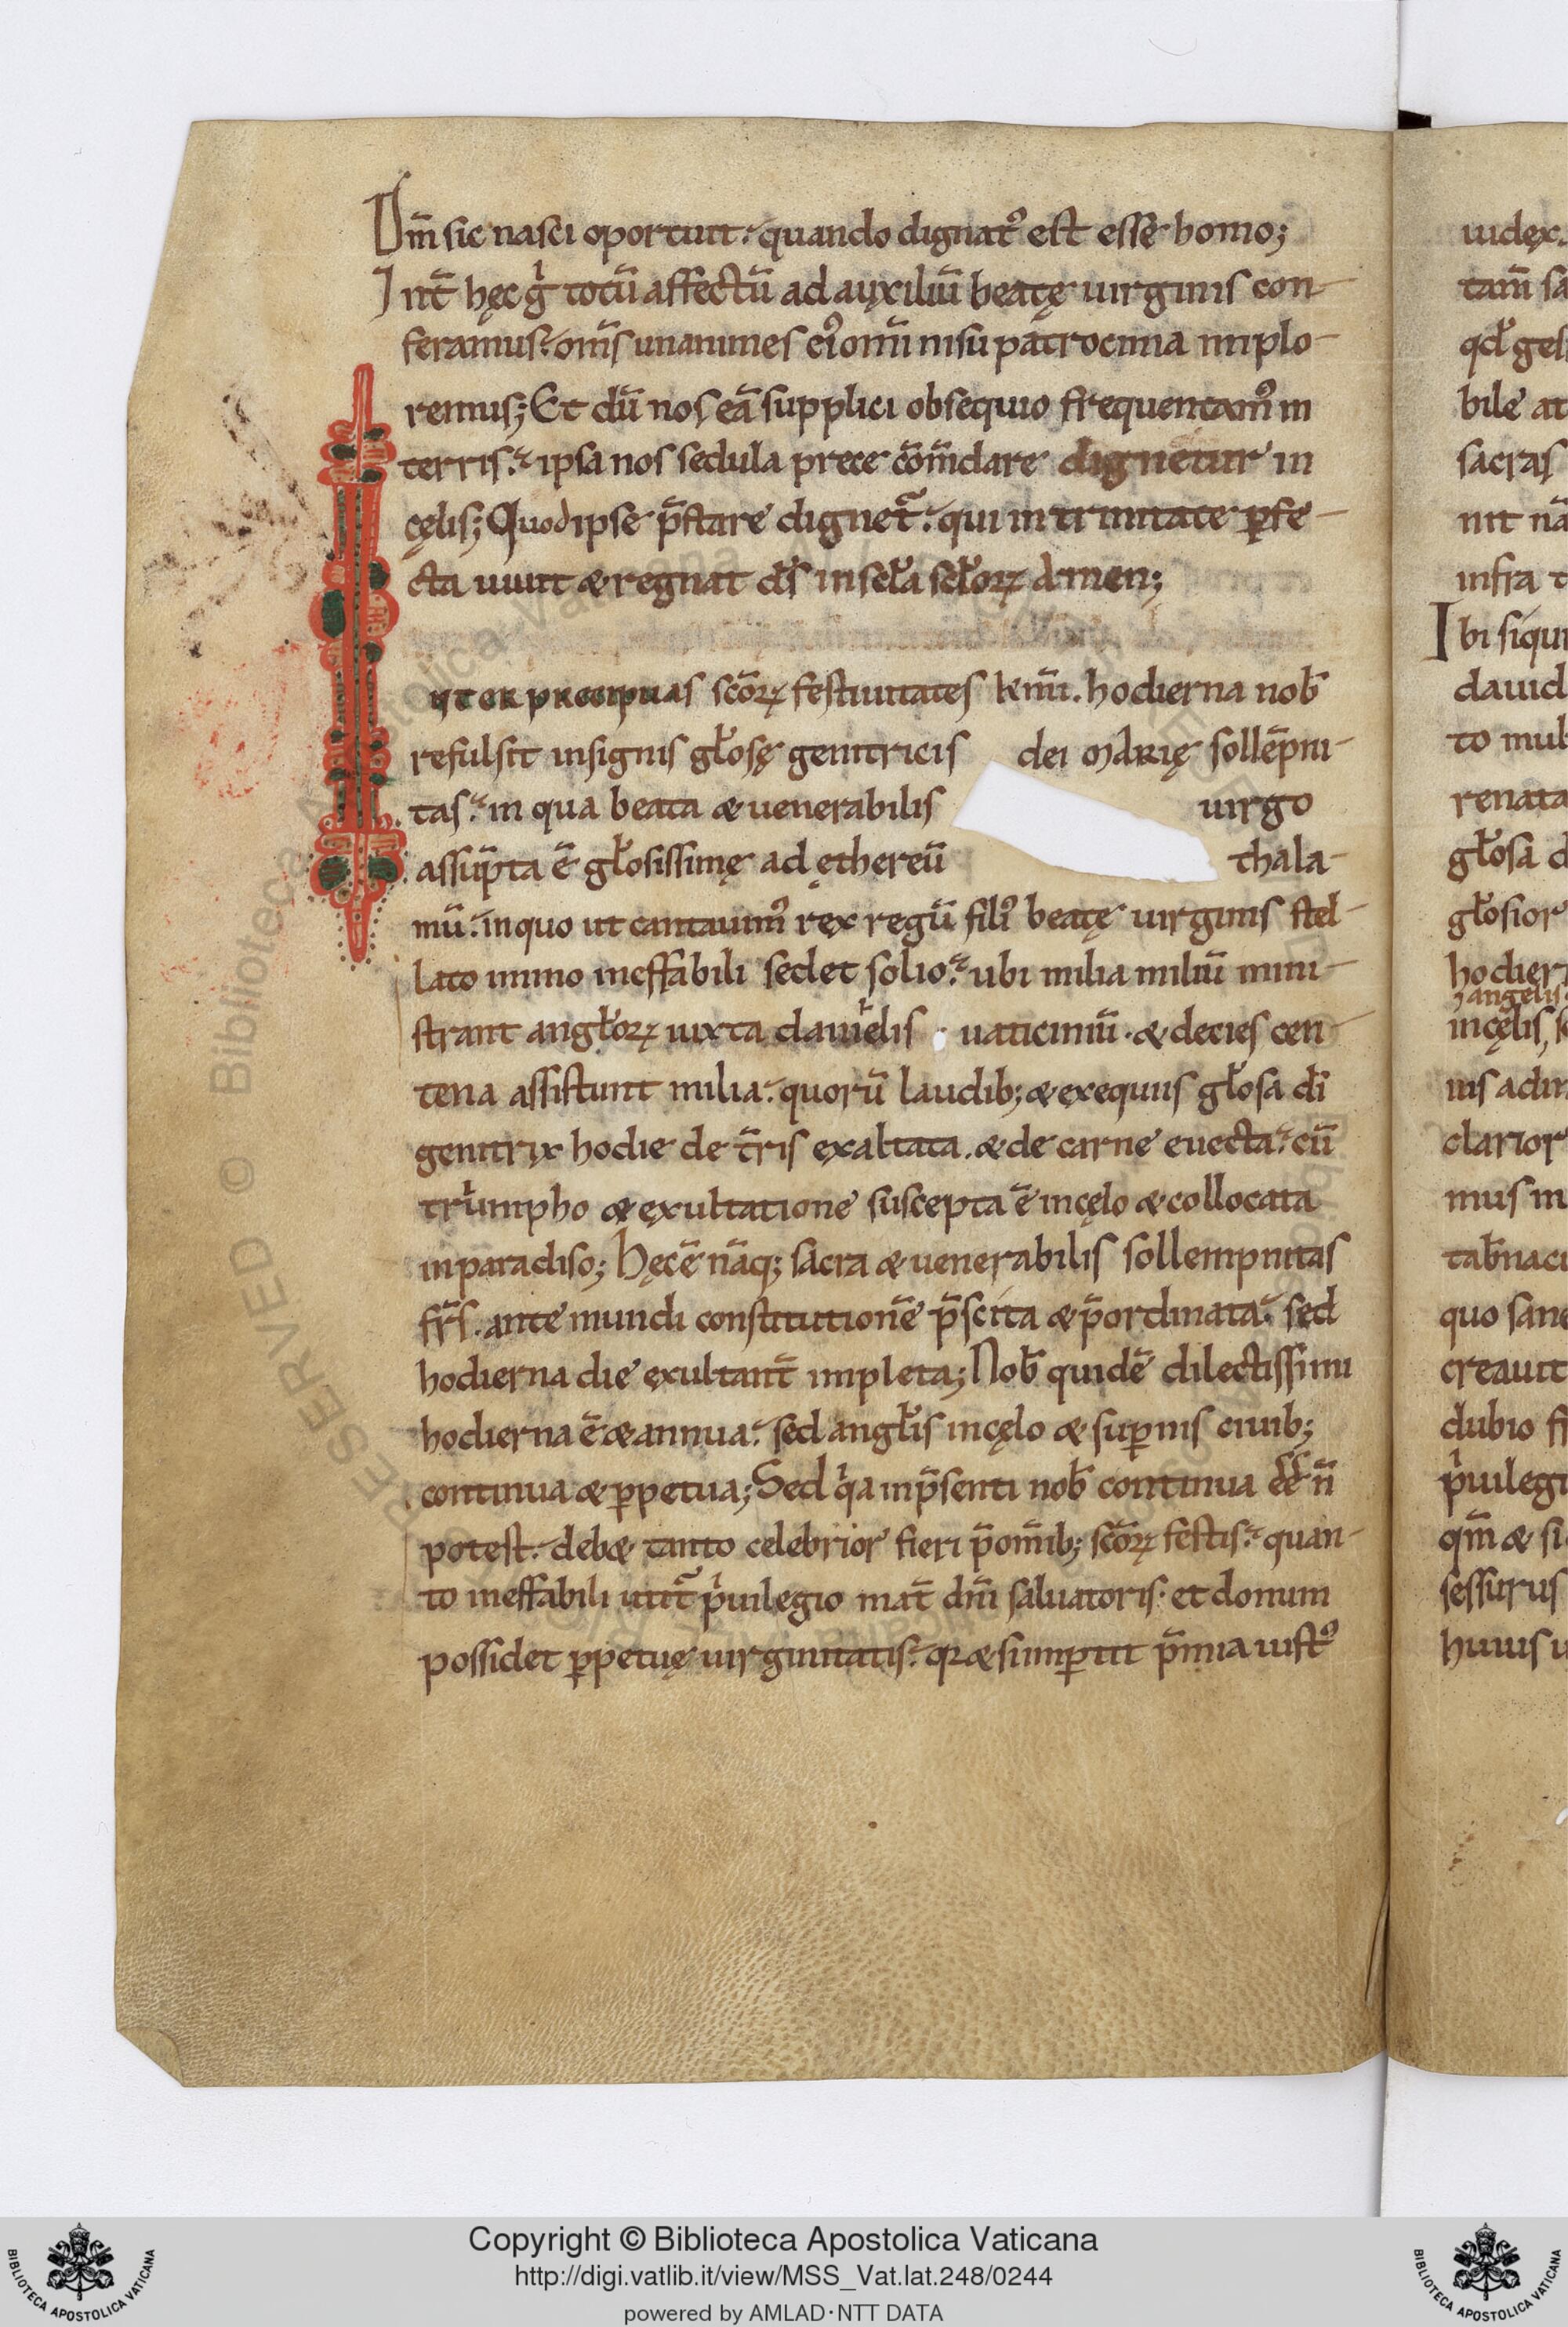 Dm̄ sic nasci oportuit. quando dignat᷒ est esse homo;
Int̄ hęc gͥ totū affectū ad auxiliū beatę uirginis con-
feramus. om̄s unanimes ei᷒ om̄i nisu patrocinia implo-
remus; Et dū nos eā supplici obsequio frequentam᷒ in
terris. ipsa nos sedula prece cōm̄dare dignetur in
cęlis; Quod ipse p̄stare dignet̄. qui in trinitate ꝑfe-
cta uiuit & regnat d̄s in scl̄a scl̄oꝝ amen;
nter precipuas sc̄oꝝ festiuitates km̄i. hodierna nob̄
refulsit insignis gl̄osę genitricis dei marię sollēpni-
tas. in qua beata & uenerabilis uirgo
assūpta ē gl̄osissimę ad ęthereū thala-
mū. in quo ut cantauim᷒ rex regū fili᷒ beatę uirginis stel-
lato immo ineffabili sedet solio. ubi milia miliū mini-
strant angl̄oꝝ iuxta danielis uaticiniū. & decies cen-
tena assistunt milia. quorū laudib; & exequiis gl̄osa dī
genitrix hodie de t̄ris exaltata. & de carne euecta. cū
triumpho & exultatione suscepta ē in cęlo & collocata
in paradiso; Hęc ē nāq; sacra & uenerabilis sollempnitas
fr̄s. ante mundi constitutionē p̄scita & p̄ordinata. sed
hodierna die exultant̄ impleta; Nob̄ quidē dilectissimi
hodierna ē & annua. sed angl̄is in cęlo & suꝑnis ciuib;
continua & ꝑpetua; Sed qͥa in p̄senti nob̄ continua ēē n̄
potest. deb& tanto celebrior fieri p̄ om̄ib; sc̄oꝝ festis. quan-
to ineffabili utit̄ pͥuilegio mat̄ dn̄i saluatoris. et donum
possidet ꝑpetuę uirginitatis. p̄mia iust᷒
iudex.
tam̄ sa
qd̄ gel
bile at
sacras
nit nā
infra t
Ibi siqui
dauid
to mul
renata
gl̄osa d
gl̄osior
hodier
angelis
in cęlis, s
nis adm
clarior
mus in
tab̄nacu
quo sane
creauit
dubio fi
pͥuilegi
qm̄ & si
sessurus
huius u
Copyright © Biblioteca Apostolica Vaticana
http://digi.vatlib.it/view/MSS_Vat.lat.248/0244
powered by AMLAD·NTT DATA
BIBLIOTECA APOSTOLICA VATICANA
BIBLIOTECA APOSTOLICA VATICANA